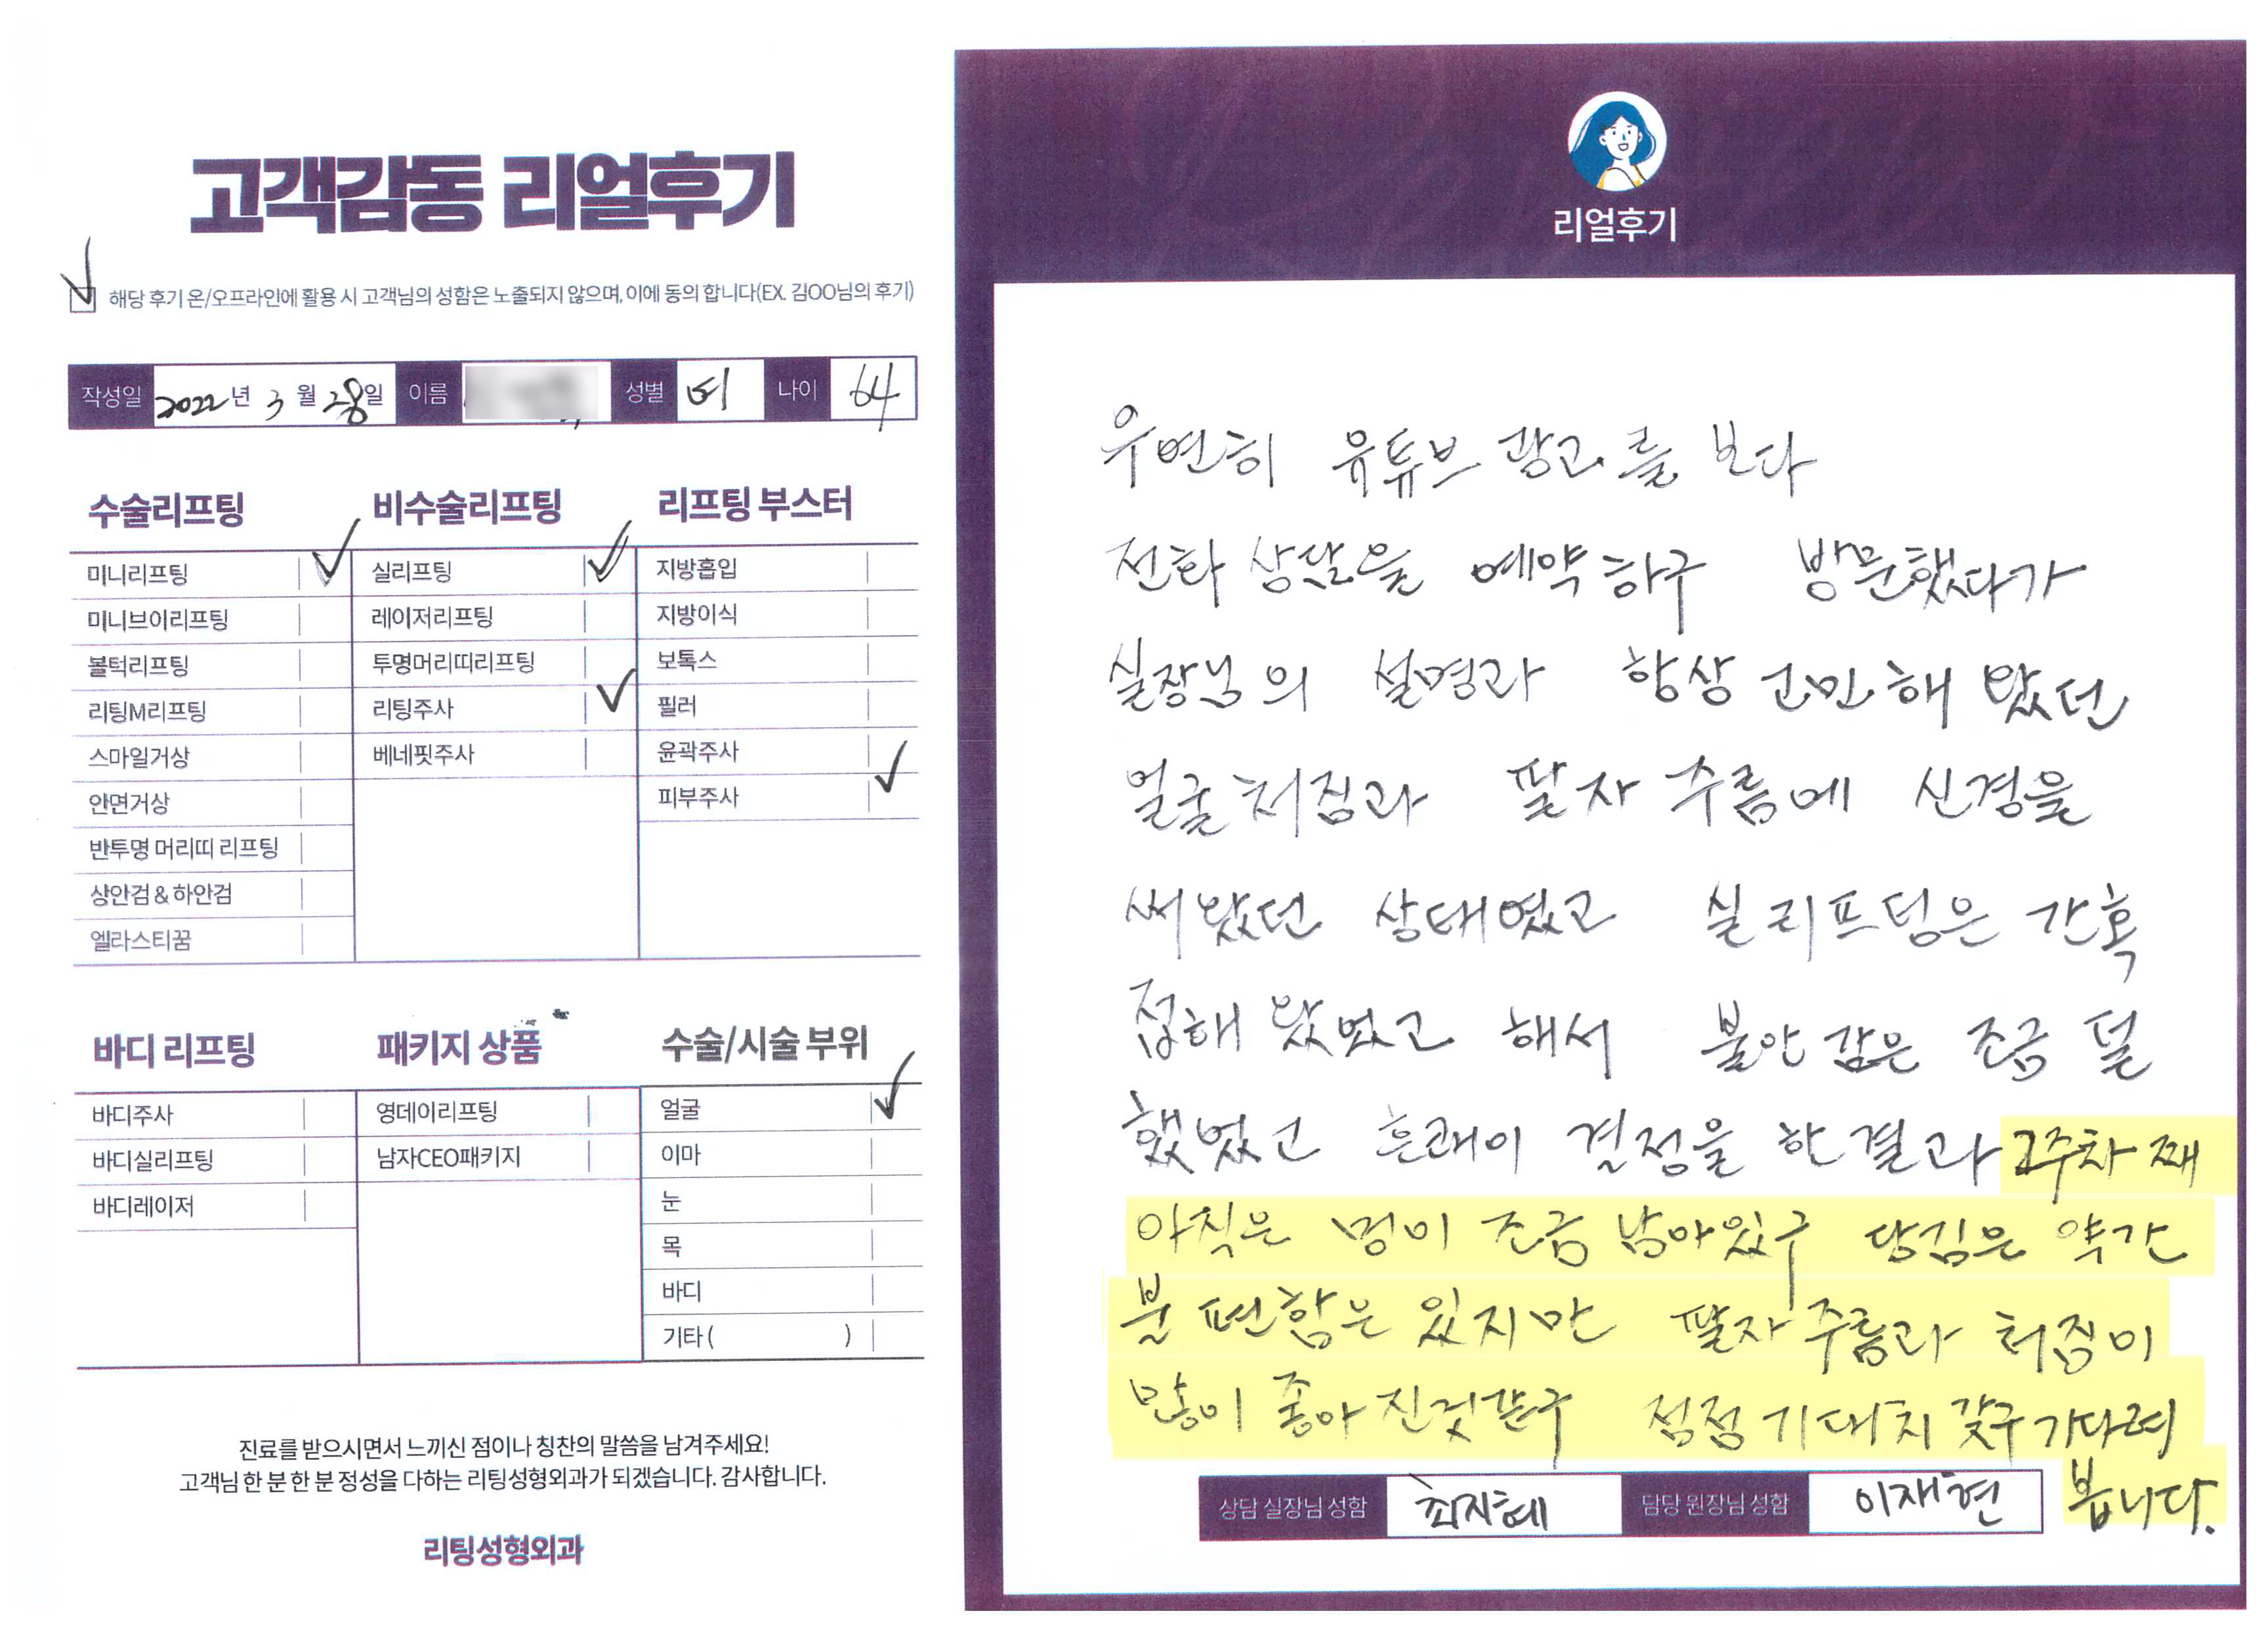 고객감동 리얼후기
해당 후기 온/오프라인에 활용 시 고객님의 성함은 노출되지 않으며, 이에 동의 합니다(EX. 김OO님의 후기)
작성일 2022년 3월 28일 이름 성별 여 나이 64
수술리프팅
미니리프팅
미니브이리프팅
볼턱리프팅
리팅M리프팅
스마일거상
안면거상
반투명 머리띠 리프팅
상안검 & 하안검
엘라스티꿈
비수술리프팅
실리프팅
레이저리프팅
투명머리띠리프팅
리팅주사
베네핏주사
리프팅 부스터
지방흡입
지방이식
보톡스
필러
윤곽주사
피부주사
바디 리프팅
바디주사
바디실리프팅
바디레이저
패키지 상품
영데이리프팅
남자CEO패키지
수술/시술 부위
얼굴
이마
눈
목
바디
기타 ( )
진료를 받으시면서 느끼신 점이나 칭찬의 말씀을 남겨주세요!
고객님 한 분 한 분 정성을 다하는 리팅성형외과가 되겠습니다. 감사합니다.
리팅성형외과
리얼후기
우연히 유튜브 광고를 보다
전화 상담을 예약하구 방문했다가
실장님의 설명과 항상 고민해 왔던
얼굴처짐과 팔자 주름에 신경을
써왔던 상태였고 실리프팅은 간혹
접해 왔었고 해서 불안감은 조금 덜
했었고 흔쾌이 결정을 한결과 2주차 째
아직은 멍이 조금 남아있구 당김은 약간
불편함은 있지만 팔자주름과 처짐이
많이 좋아진것같구 점점 기대치 갖구 기다려
봅니다.
상담 실장님 성함 최지혜 담당 원장님 성함 이재현